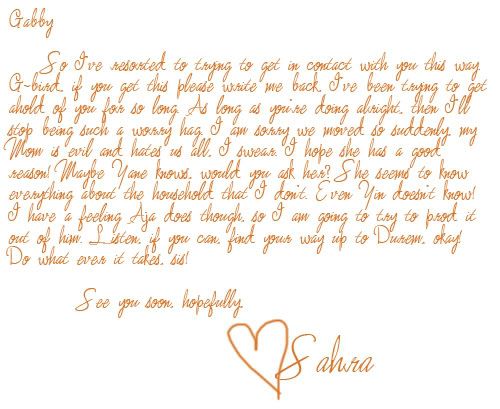 Gabby
So I've resorted to tryng to get in contact with you this way
G-bird, if you get this please write me back. I've been tryng to get
ahold of you for so long. As long as you're doing alright, then I'll
stop being such a worry hag. I am sorry we moved so suddenly, my
Mom is evil and hates us all, I swear. I hope she has a good
reason! Maybe Yane knows, would you ask her? She seems to know
everything about the household that I don't. Even Yin doesn't know!
I have a feeling Aja does though, so I am going to try to prod it
out of him. Listen, if you can, find your way up to Durem, okay!
Do what ever it takes, sis!
See you soon, hopefully.
Sahra